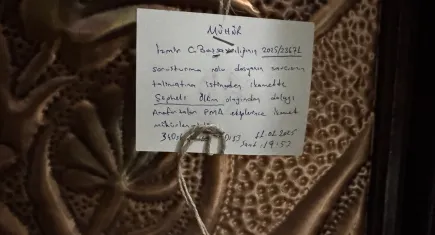 MÜHÜR
İzmir C.Başsavcılığının 2025/23671
soruşturma nolu dosyanın savcısının
talimatına istinaden ikamette
Şüpheli Ölüm olayından dolayı
PMA ekiplerince ikamet
mühürlenmiştir
11.02.2025
Saat: 19:52